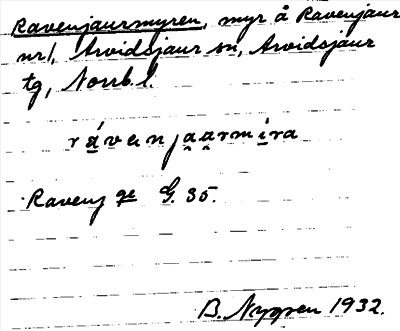 Ravenjaurmyren, myr å Ravenjaur
nr 1, Arvidsjaur sn, Arvidsjaur
tg, Norrb. l.
rávenjaarmira
Ravenj ge G. 35.
B. Nygren 1932.